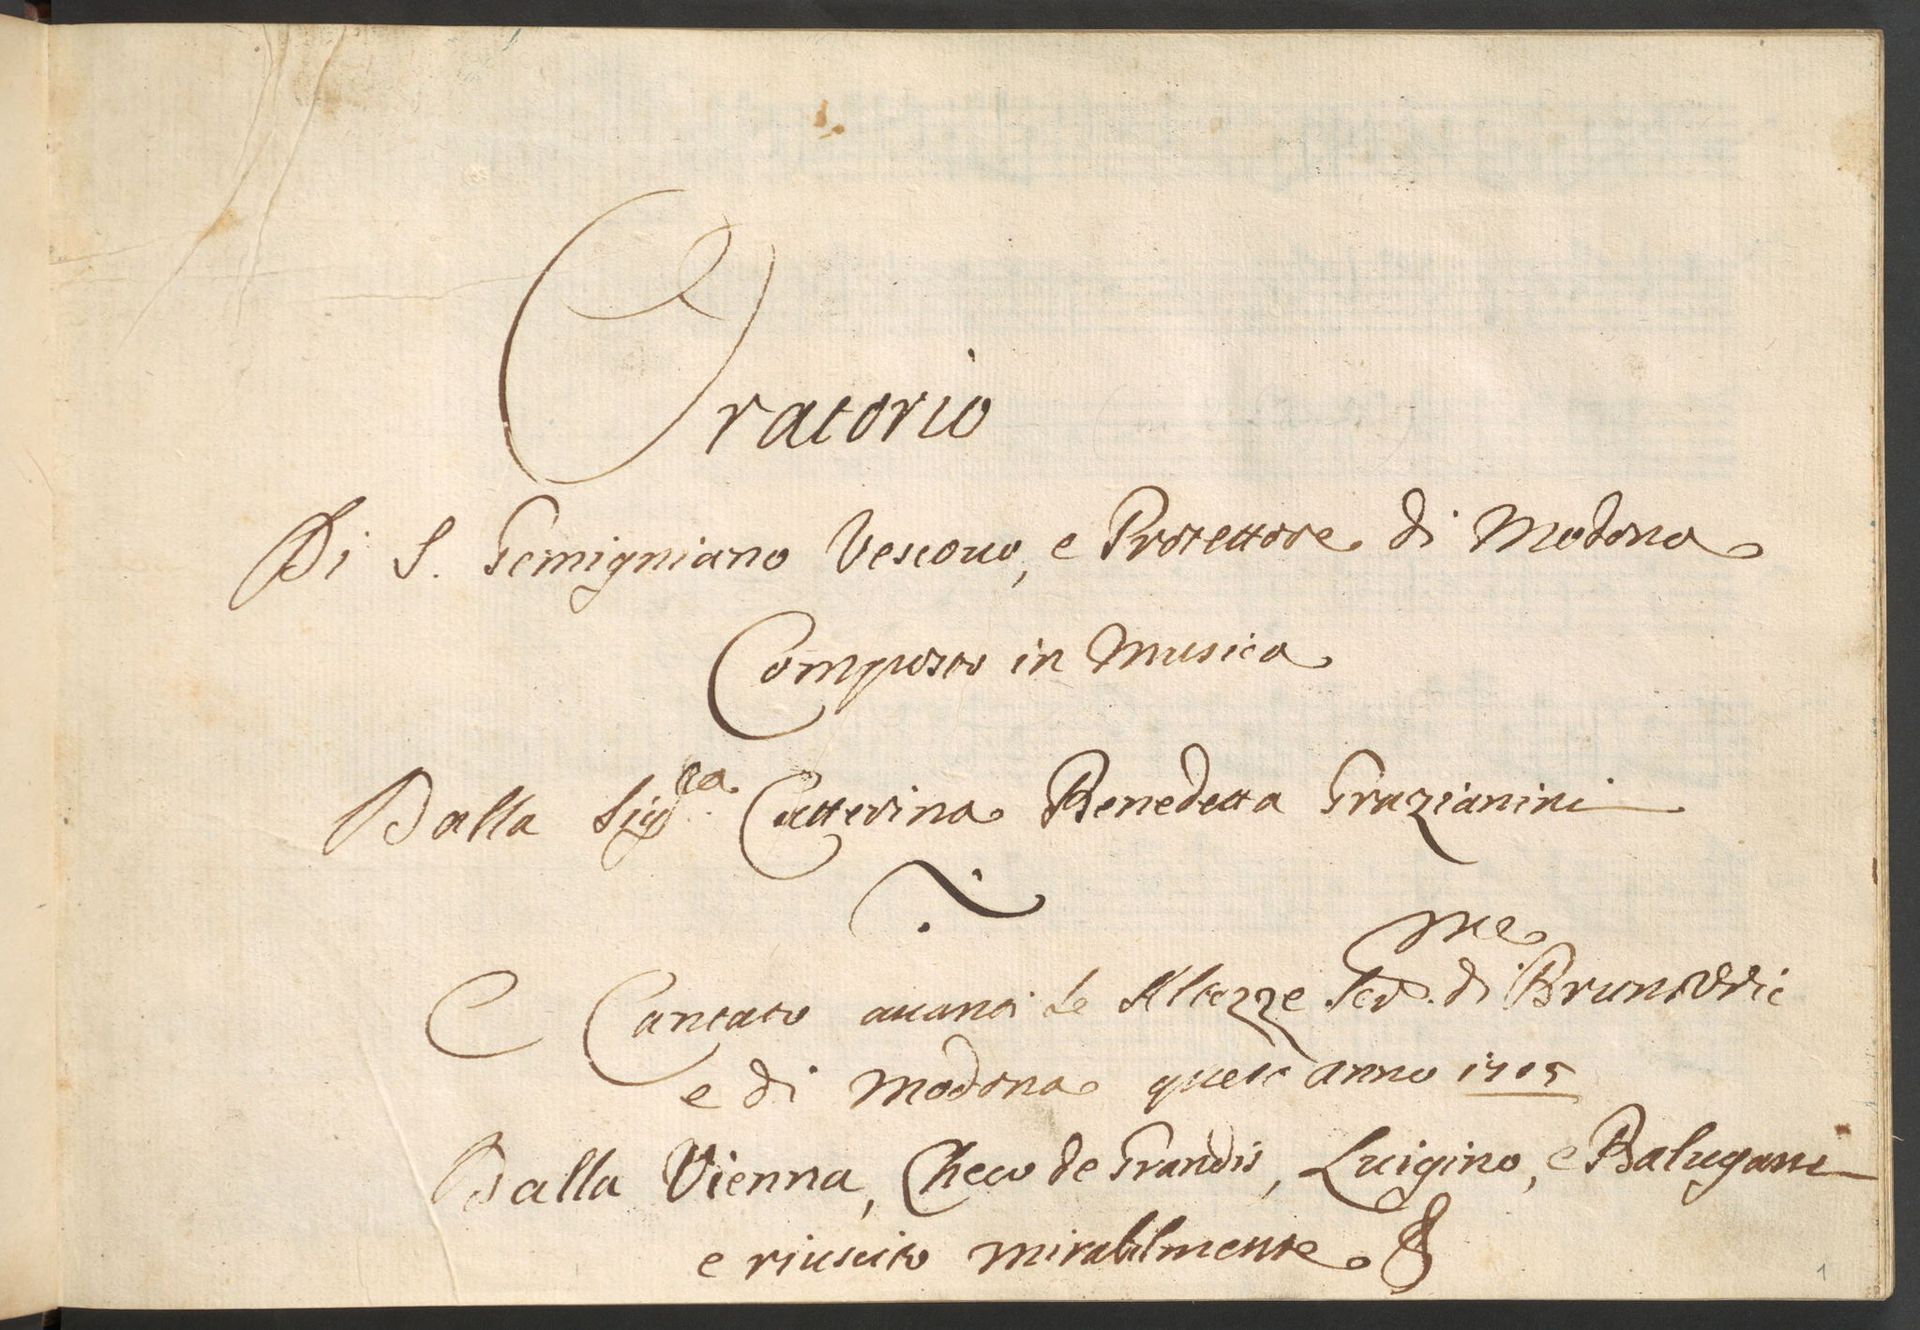 Oratorio
Di S. Gemigniano Vescouo, e Protettore di Modona
Composto in Musica
Dalla Sig.ra Catterina Benedetta Grazianini
E Cantato auanti Le Altezze Ser.me di Brunsvic
e di Modona quest anno 1705
Dalla Vienna, Checo de Grandis, Luigino, e Balugani
e riuscito mirabilmente
1